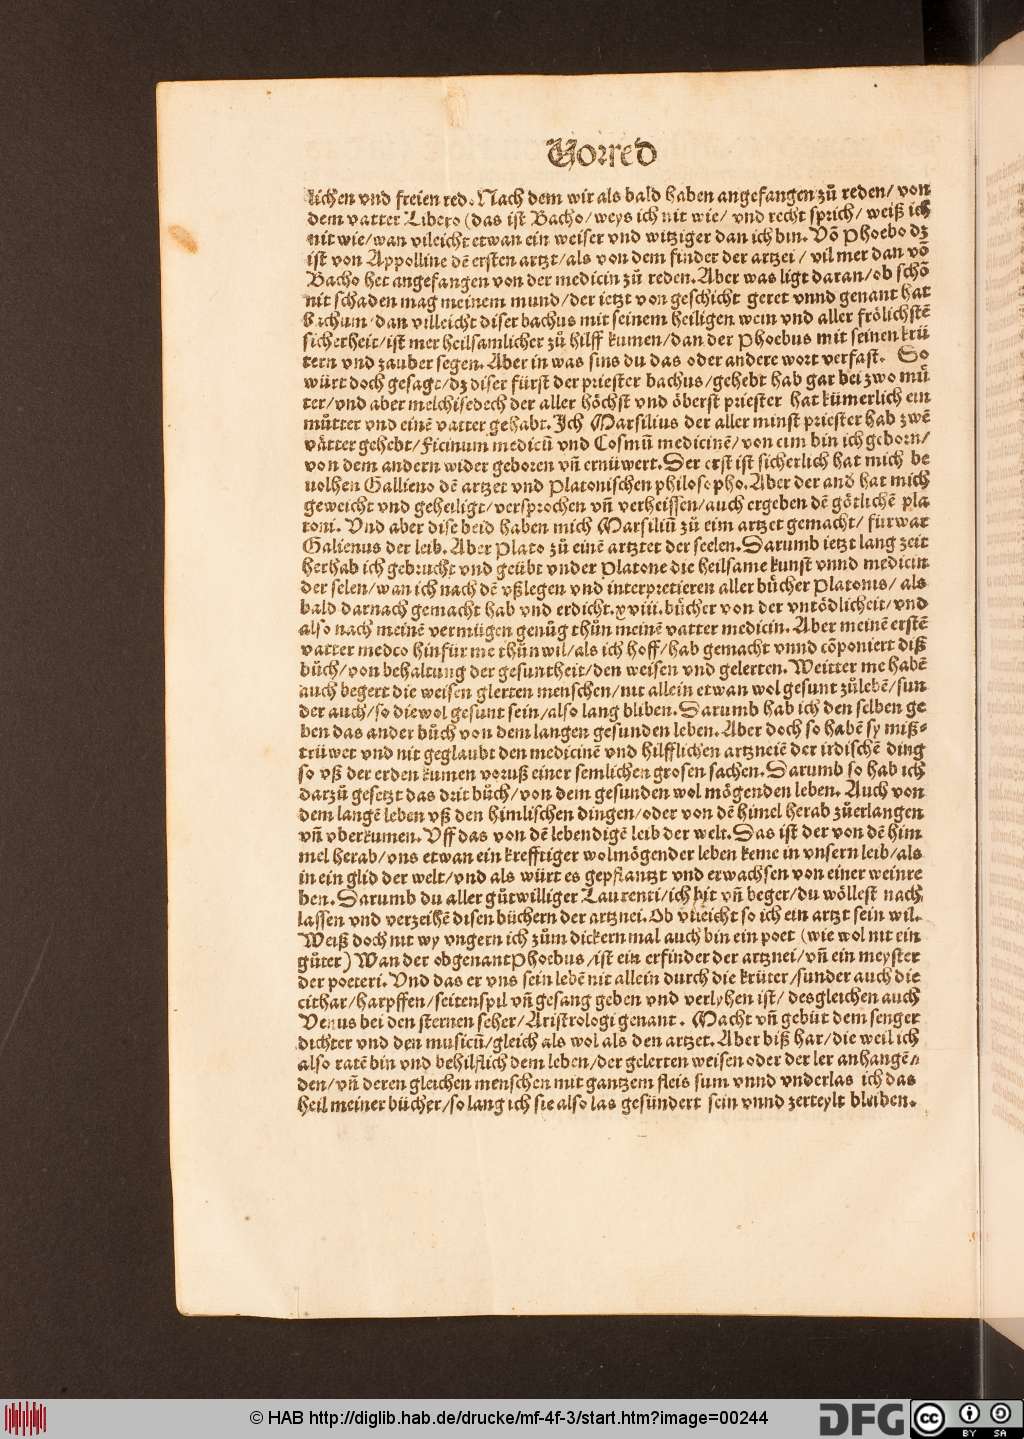 Vorred
lichen vnd freien red. Nach dem wir als bald haben angefangen zů reden/ von
dem vatter Libero (das ist Bacho/weys ich nit wie/ vnd recht sprich/ weiß ich
nit wie/wan vileicht etwan ein weiser vnd witziger dan ich bin. Võ Phoebo dz
ist von Appolline dẽ ersten artzt/als von dem finder der artzei/ vil mer dan võ
Bacho het angefangen von der medicin zů reden. Aber was ligt daran/ob schõ
nit schaden mag meinem mund/der ietzt von geschicht geret vnnd genant hat
bachum dan villeicht diser bachus mit seinem heiligen wein vnd aller frölichstẽ
sicherheit/ist mer heilsamlicher zů hilff kumen/dan der Phoebus mit seinen krü
tern vnd zauber segen. Aber in was sins du das oder andere wort verfast. So
würt doch gesagt/dz diser fürst der priester bachus/gehebt hab gar bei zwo mů
ter/vnd aber melchisedech der aller höchst vnd öberst priester hat kümerlich ein
můtter vnd einẽ vatter gehabt. Ich Marsilius der aller minst priester hab zwẽ
vätter gehebt/ficinum medicũ vnd Cosmũ medicinẽ/von eim bin ich geborn/
von dem andern wider geboren vñ ernüwert. Der erst ist sicherlich hat mich be
uolhen Gallieno dẽ artzet vnd Platonischen philosopho. Aber der and hat mich
geweicht vnd geheiligt/versprochen vñ verheissen/auch ergeben dẽ götlichẽ pla
toni. Vnd aber dise beid haben mich Marsiliũ zů eim artzet gemacht/ fürwar
Galienus der leib. Aber Plato zů einẽ artztet der seelen. Darumb ietzt lang zeit
herhab ich gebrucht vnd geübt vnder Platone die heilsame kunst vnnd medicin
der selen/wan ich nach dẽ vßlegen vnd interpretieren aller bůcher Platonis/ als
bald darnach gemacht hab vnd erdicht.xviii.bůcher von der vntödlicheit/vnd
also nach meinẽ vermügen genůg thůn meinẽ vatter medicin. Aber meinẽ erstẽ
vatter medco hinfür me thůn wil/als ich hoff/hab gemacht vnnd cõponiert diß
bůch/von behaltung der gesuntheit/den weisen vnd gelerten. Weitter me habẽ
auch begert die weisen glerten menschen/nit allein etwan wol gesunt zůlebẽ/sun
der auch/so die wol gesunt sein/also lang bliben. Darumb hab ich den selben ge
ben das ander bůch von dem langen gesunden leben. Aber doch so habẽ sy miß⸗
trüwet vnd nit geglaubt den medicinẽ vnd hilfflichen artzneiẽ der irdischẽ ding
so vß der erden kumen voruß einer semlichen grosen sachen. Darumb so hab ich
darzů gesetzt das drit bůch/von dem gesunden wol mögenden leben. Auch von
dem langẽ leben vß den himlischen dingen/oder von dẽ himel herab zůerlangen
vñ vberkumen. Vff das von dẽ lebendigẽ leib der welt. Das ist der von dẽ him
mel herab/vns etwan ein krefftiger wolmögender leben keme in vnsern leib/als
in ein glid der welt/vnd als würt es gepflantzt vnd erwachsen von einer weinre
ben. Darumb du aller gůtwilliger Laurenti/ich bit vñ beger/du wöllest nach
lassen vnd verzeihẽ disen büchern der artznei. Ob vileicht so ich ein artzt sein wil.
Weiß doch nit wy vngern ich zům dickern mal auch bin ein poet (wie wol nit ein
gůter) Wan der obgenant Phoebus/ist ein erfinder der artznei/vñ ein meyster
der poeteri. Vnd das er vns sein lebẽ nit allein durch die krüter/sunder auch die
cithar/harpffen/seitenspil vñ gesang geben vnd verlyhen ist/ desgleichen auch
Venus bei den sternen seher/Aristrologi genant. Macht vñ gebüt dem senger
dichter vnd den musicũ/gleich als wol als den artzet. Aber biß har/die weil ich
also ratẽ bin vnd behilflich dem leben/der gelerten weisen oder der ler anhangẽ⸗
den/vñ deren gleichen menschen mit gantzem fleis sum vnnd vnderlas ich das
heil meiner bücher/so lang ich sie also las gesündert sein vnnd zerteylt bleiben.
© HAB http://diglib.hab.de/drucke/mf-4f-3/start.htm?image=00244
DFG
cc
BY SA